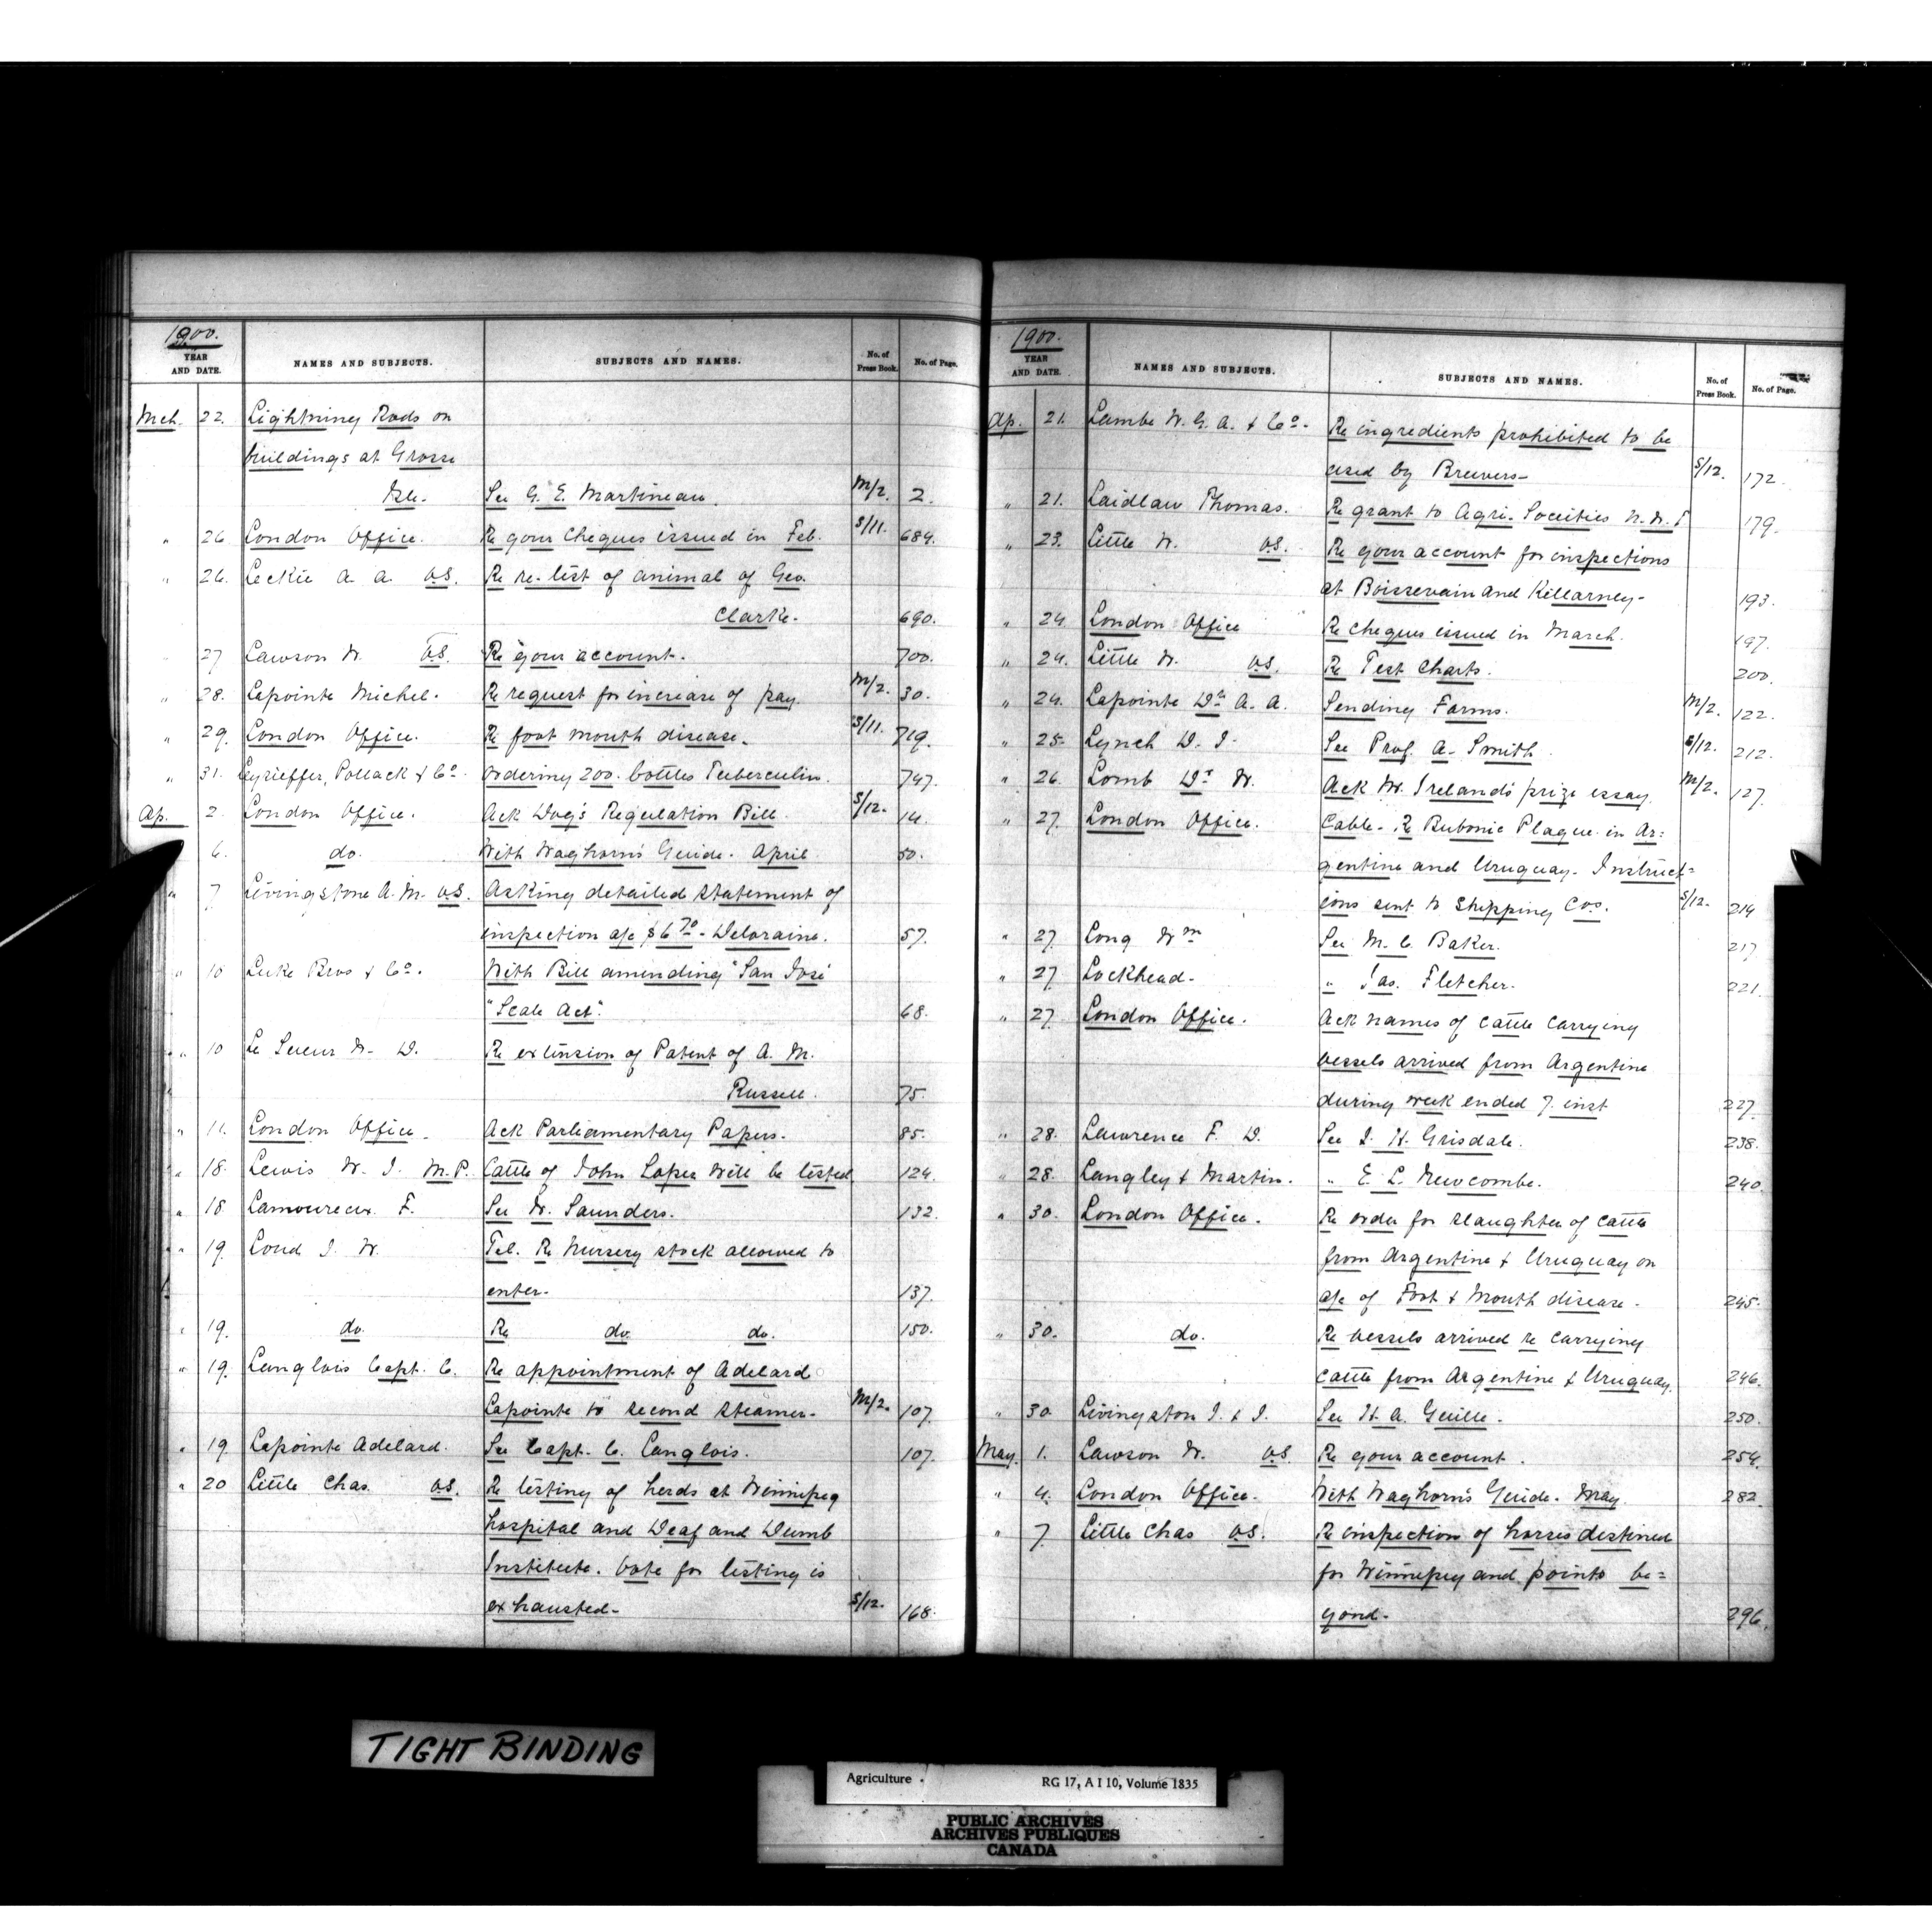 1900.
YEAR AND DATE. NAMES AND SUBJECTS. SUBJECTS AND NAMES. No. of Press Book. No. of Page.
Mch. 22. Lightning Rods on
buildings at Grosse
Isle. See G. E. Martineau. M/2. 2.
" 26 London Office. Re your cheques issued in Feb. S/11. 684.
" 26. Leckie A. A. V.S. Re re-test of animal of Geo.
Clarke. 690.
27 Lawson W. V.S. Re your account. 700.
" 28. Lapointe Michel. Re request for increase of pay. M/2. 30.
" 29. London Office. Re foot mouth disease. S/11. 719.
" 31. Pollack & Co. Ordering 200. bottles Tuberculin. 747.
Ap. 2. London Office. Ack Dog's Regulation Bill. S/12. 14.
6. do. With Waghorn's Guide. April 50.
" 7 Livingstone A. M. V.S. Asking detailed statement of
inspection a/c $6 70 - Deloraine. 57.
" 10 Luke Bros & Co. With Bill amending "San José
"Scale Act". 68.
" 10 Le Sueur W. D. Re extension of Patent of A. M.
Russell. 75.
" 11. London Office. Ack Parliamentary Papers. 85.
" 18. Lewis W. J. M.P. Cattle of John Loper will be tested 124.
" 18. Lamoureux F. See W. Saunders. 132.
" 19. Loud J. W. Tel. Re Nursery stock allowed to
enter. 137.
" 19. do. Re do. do. 150.
" 19. Langlois Capt. C. Re appointment of Adelard
Lapointe to second steamer. M/2. 107.
" 19. Lapointe Adelard. See Capt. C. Langlois. 107.
" 20 Little Chas. V.S. Re testing of herds at Winnipeg
hospital and Deaf and Dumb
Institute. Vote for testing is
exhausted. S/12. 168.
1900.
YEAR AND DATE. NAMES AND SUBJECTS. SUBJECTS AND NAMES. No. of Press Book. No. of Page.
Ap. 21. Lambe W. G. A. & Co. Re ingredients prohibited to be
used by Brewers. S/12. 172.
" 21. Laidlaw Thomas. Re grant to Agri. Societies N. W. T 179.
" 23. Little W. V.S. Re your account for inspections
at Boissevain and Killarney. 193.
" 24. London Office Re cheques issued in March. 197.
" 24. Little W. V.S. Re Test Charts. 200.
" 24. Lapointe Dr A. A. Sending Forms. M/2. 122.
" 25. Lynch D. J. See Prof. A. Smith. S/12. 212.
" 26. Lomb Dr W. Ack W. Ireland's prize essay. M/2. 127.
" 27. London Office. Cable. Re Bubonic Plague in Ar=
gentine and Uruguay. Instruct=
ions sent to Shipping Cos. S/12. 214
" 27. Long Wm See M. C. Baker. 217
" 27. Lockhead. " Jas. Fletcher. 221.
" 27. London Office. Ack names of cattle carrying
vessels arrived from Argentine
during week ended 7. inst 227.
" 28. Lawrence F. D. See J. H. Grisdale. 238.
" 28. Langley & Martin. " E. L. Newcombe. 240.
" 30. London Office. Re order for slaughter of cattle
from Argentine & Uruguay on
a/c of Foot & Mouth disease. 245.
" 30. do. Re vessels arrived re carrying
cattle from Argentine & Uruguay. 246.
" 30. Livingston J. & J. See H. A. Guille. 250.
May. 1. Lawson W. V.S. Re your account. 254.
" 4. London Office. With Waghorn's Guide. May. 282.
" 7. Little Chas V.S. Re inspection of horses destined
for Winnipeg and points be=
yond. 296.
TIGHT BINDING
Agriculture RG 17, A I 10, Volume 1835
PUBLIC ARCHIVES
ARCHIVES PUBLIQUES
CANADA